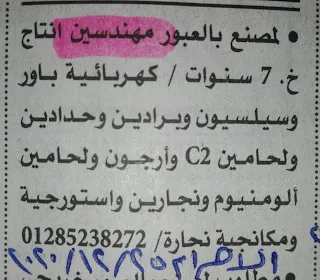 ● لمصنع بالعبور مهندسين انتاج
خ. 7 سنوات / كهربائية باور
وسيلسيون وبرادين وحدادين
ولحامين C2 وأرجون ولحامين
ألومنيوم ونجارين واستورجية
ومكانجية نجارة/ 01285238272